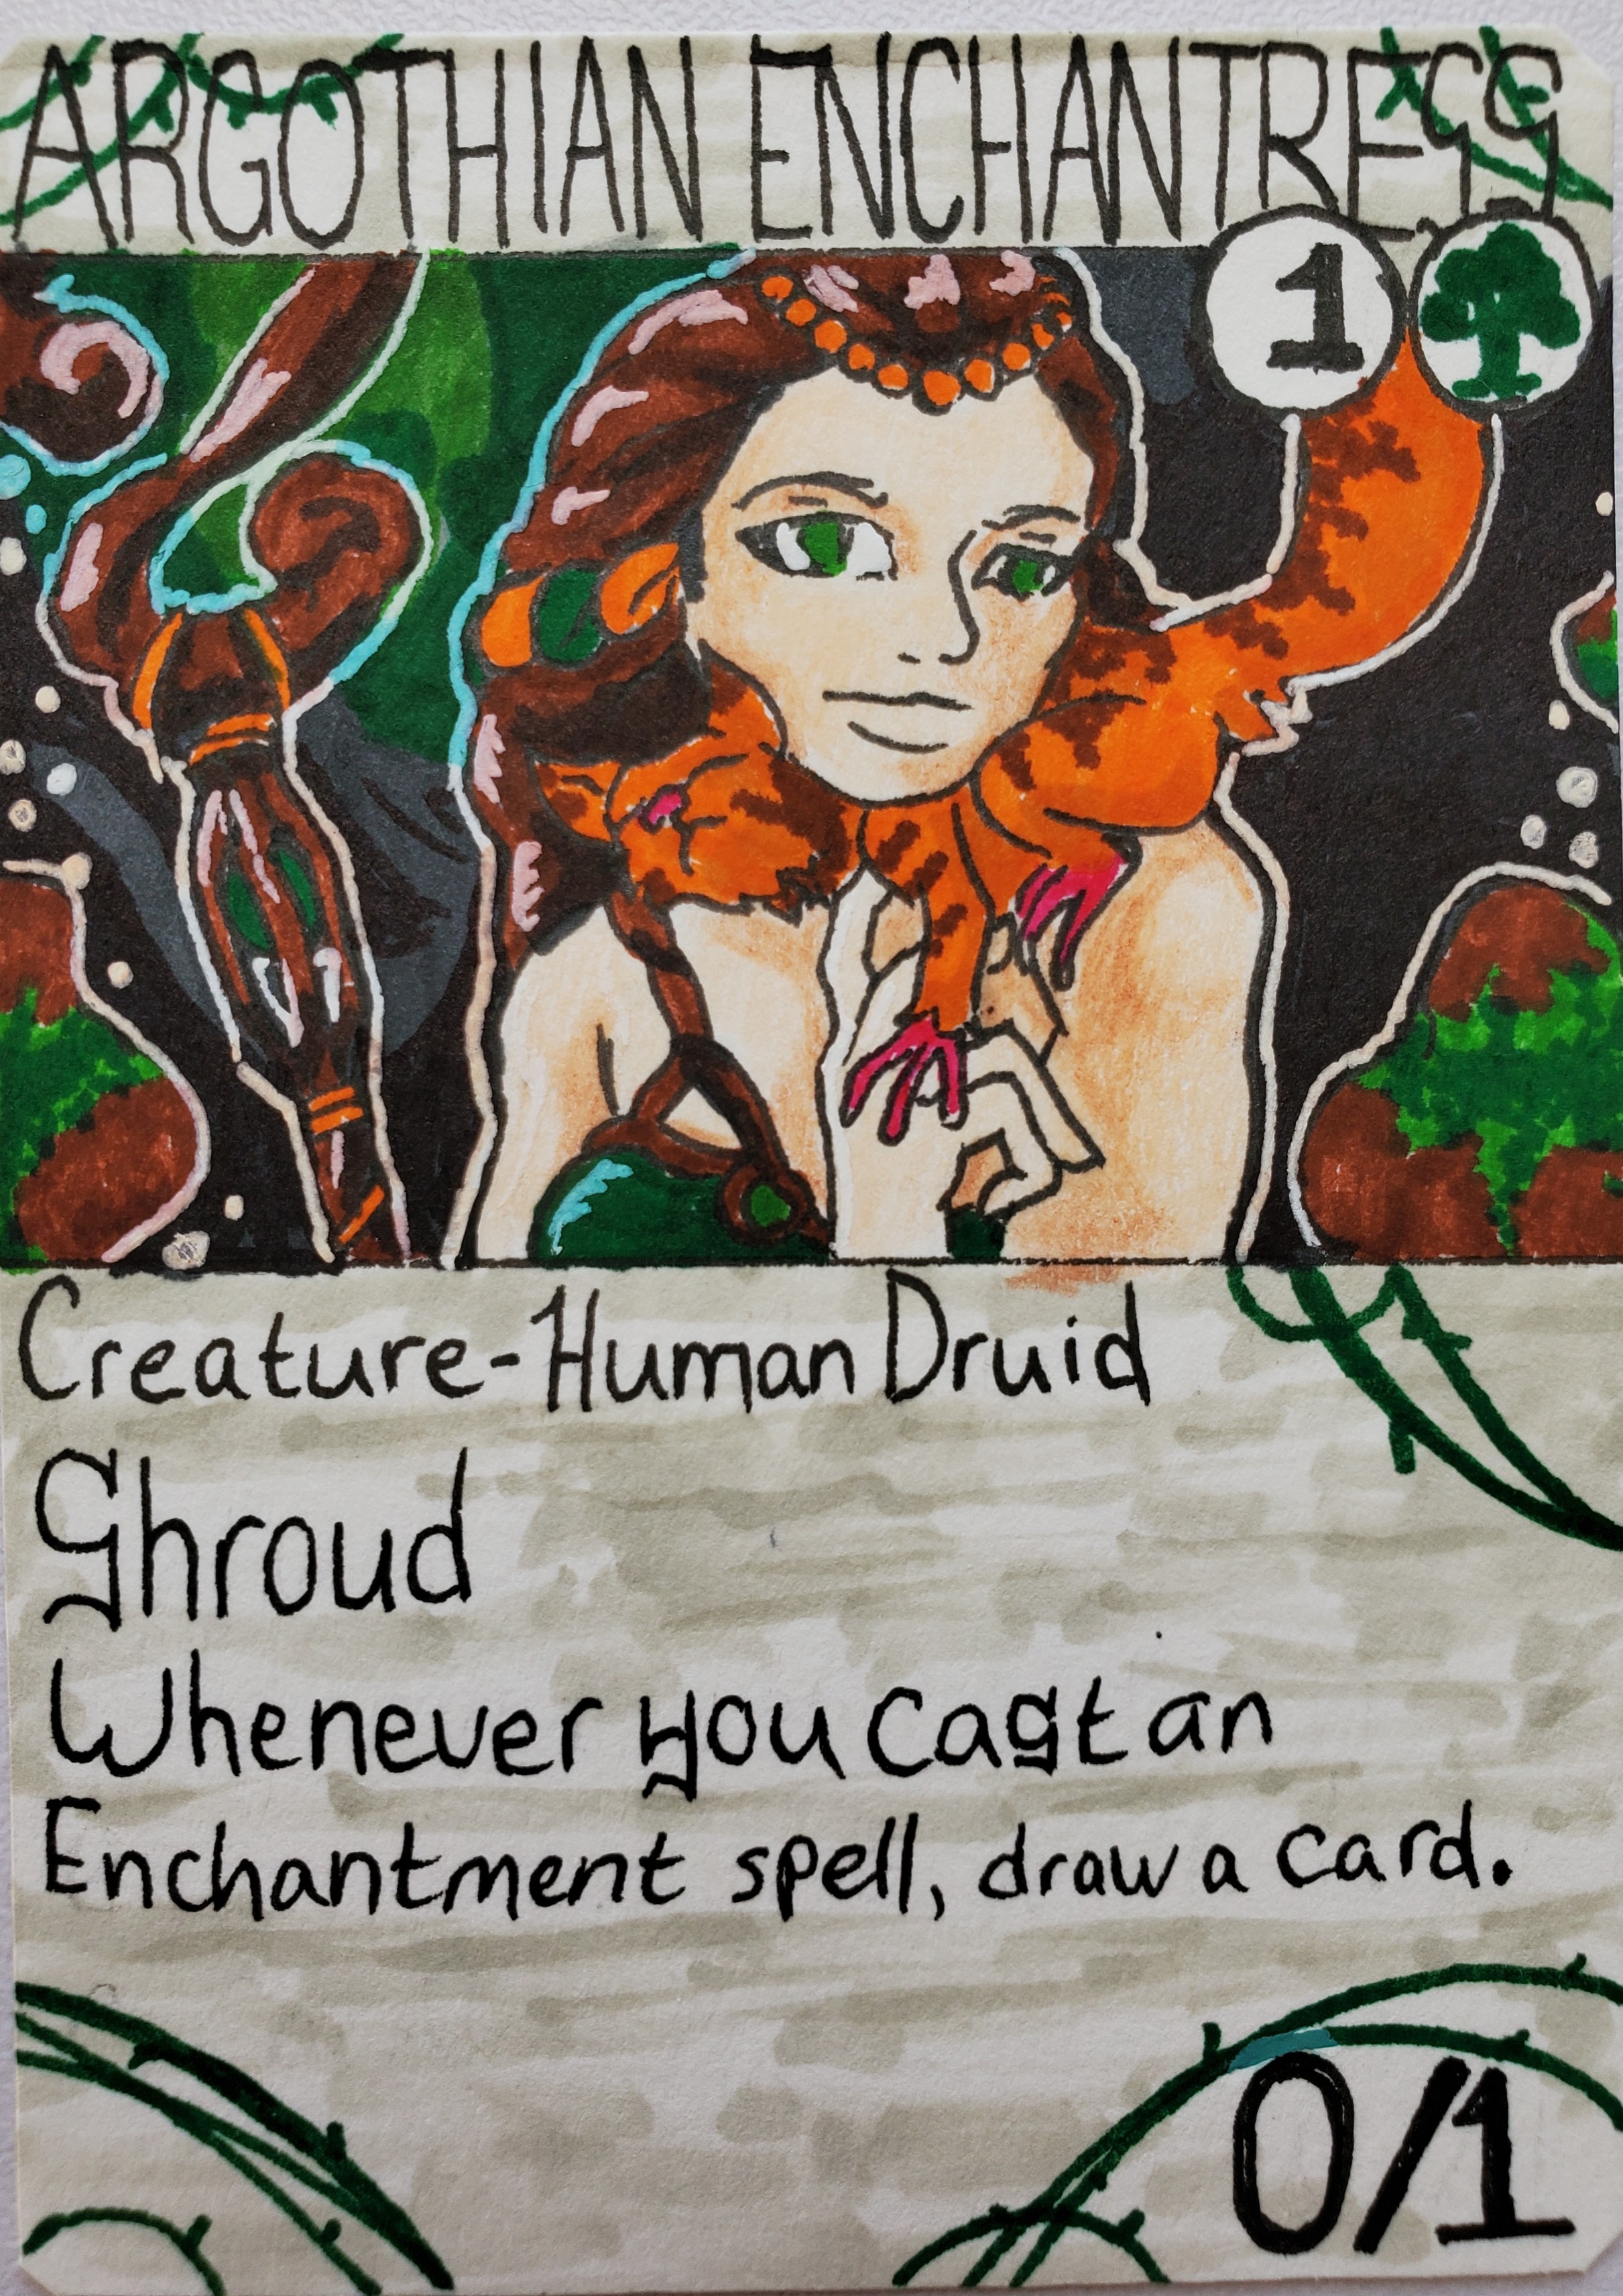 ARGOTHIAN ENCHANTRESS
1
Creature-Human Druid
Shroud
Whenever you cast an
Enchantment spell, draw a card.
0/1